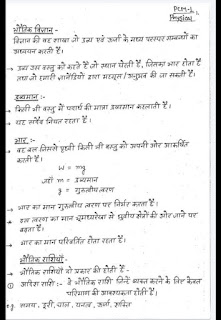 PCM-1
Physics
भौतिक विज्ञान -
विज्ञान की वह शाखा जो द्रव्य एवं ऊर्जा के मध्य परस्पर सम्बन्धों का
अध्ययन करती है।
→ द्रव्य उस वस्तु को कहते हैं जो स्थान घेरती है, जिसका भार होता है
तथा जो हमारी ज्ञानेन्द्रियों द्वारा महसूस/अनुभव की जा सकती हैं।
द्रव्यमान :-
किसी भी वस्तु में पदार्थ की मात्रा द्रव्यमान कहलाती है।
→ यह सदैव नियत रहता है।
भार :-
वह बल जिससे पृथ्वी किसी भी वस्तु को अपनी ओर आकर्षित
करती है।
w = mg
जहाँ m = द्रव्यमान
g = गुरुत्वीय त्वरण
→ भार का मान गुरुत्वीय त्वरण पर निर्भर करता है।
→ का मान भूमध्यरेखा से ध्रुवीय क्षेत्रों की ओर जाने पर
बढ़ता है।
→ भार का मान परिवर्तित होता रहता है।
भौतिक राशियाँ -
→ भौतिक राशियाँ दो प्रकार की होती हैं -
① अदिश राशि :- वे भौतिक राशि जिन्हें व्यक्त करने के लिए केवल
परिमाण की आवश्यकता होती है।
e.g. समय, दूरी, चाल, घनत्व, ऊर्जा, शक्ति